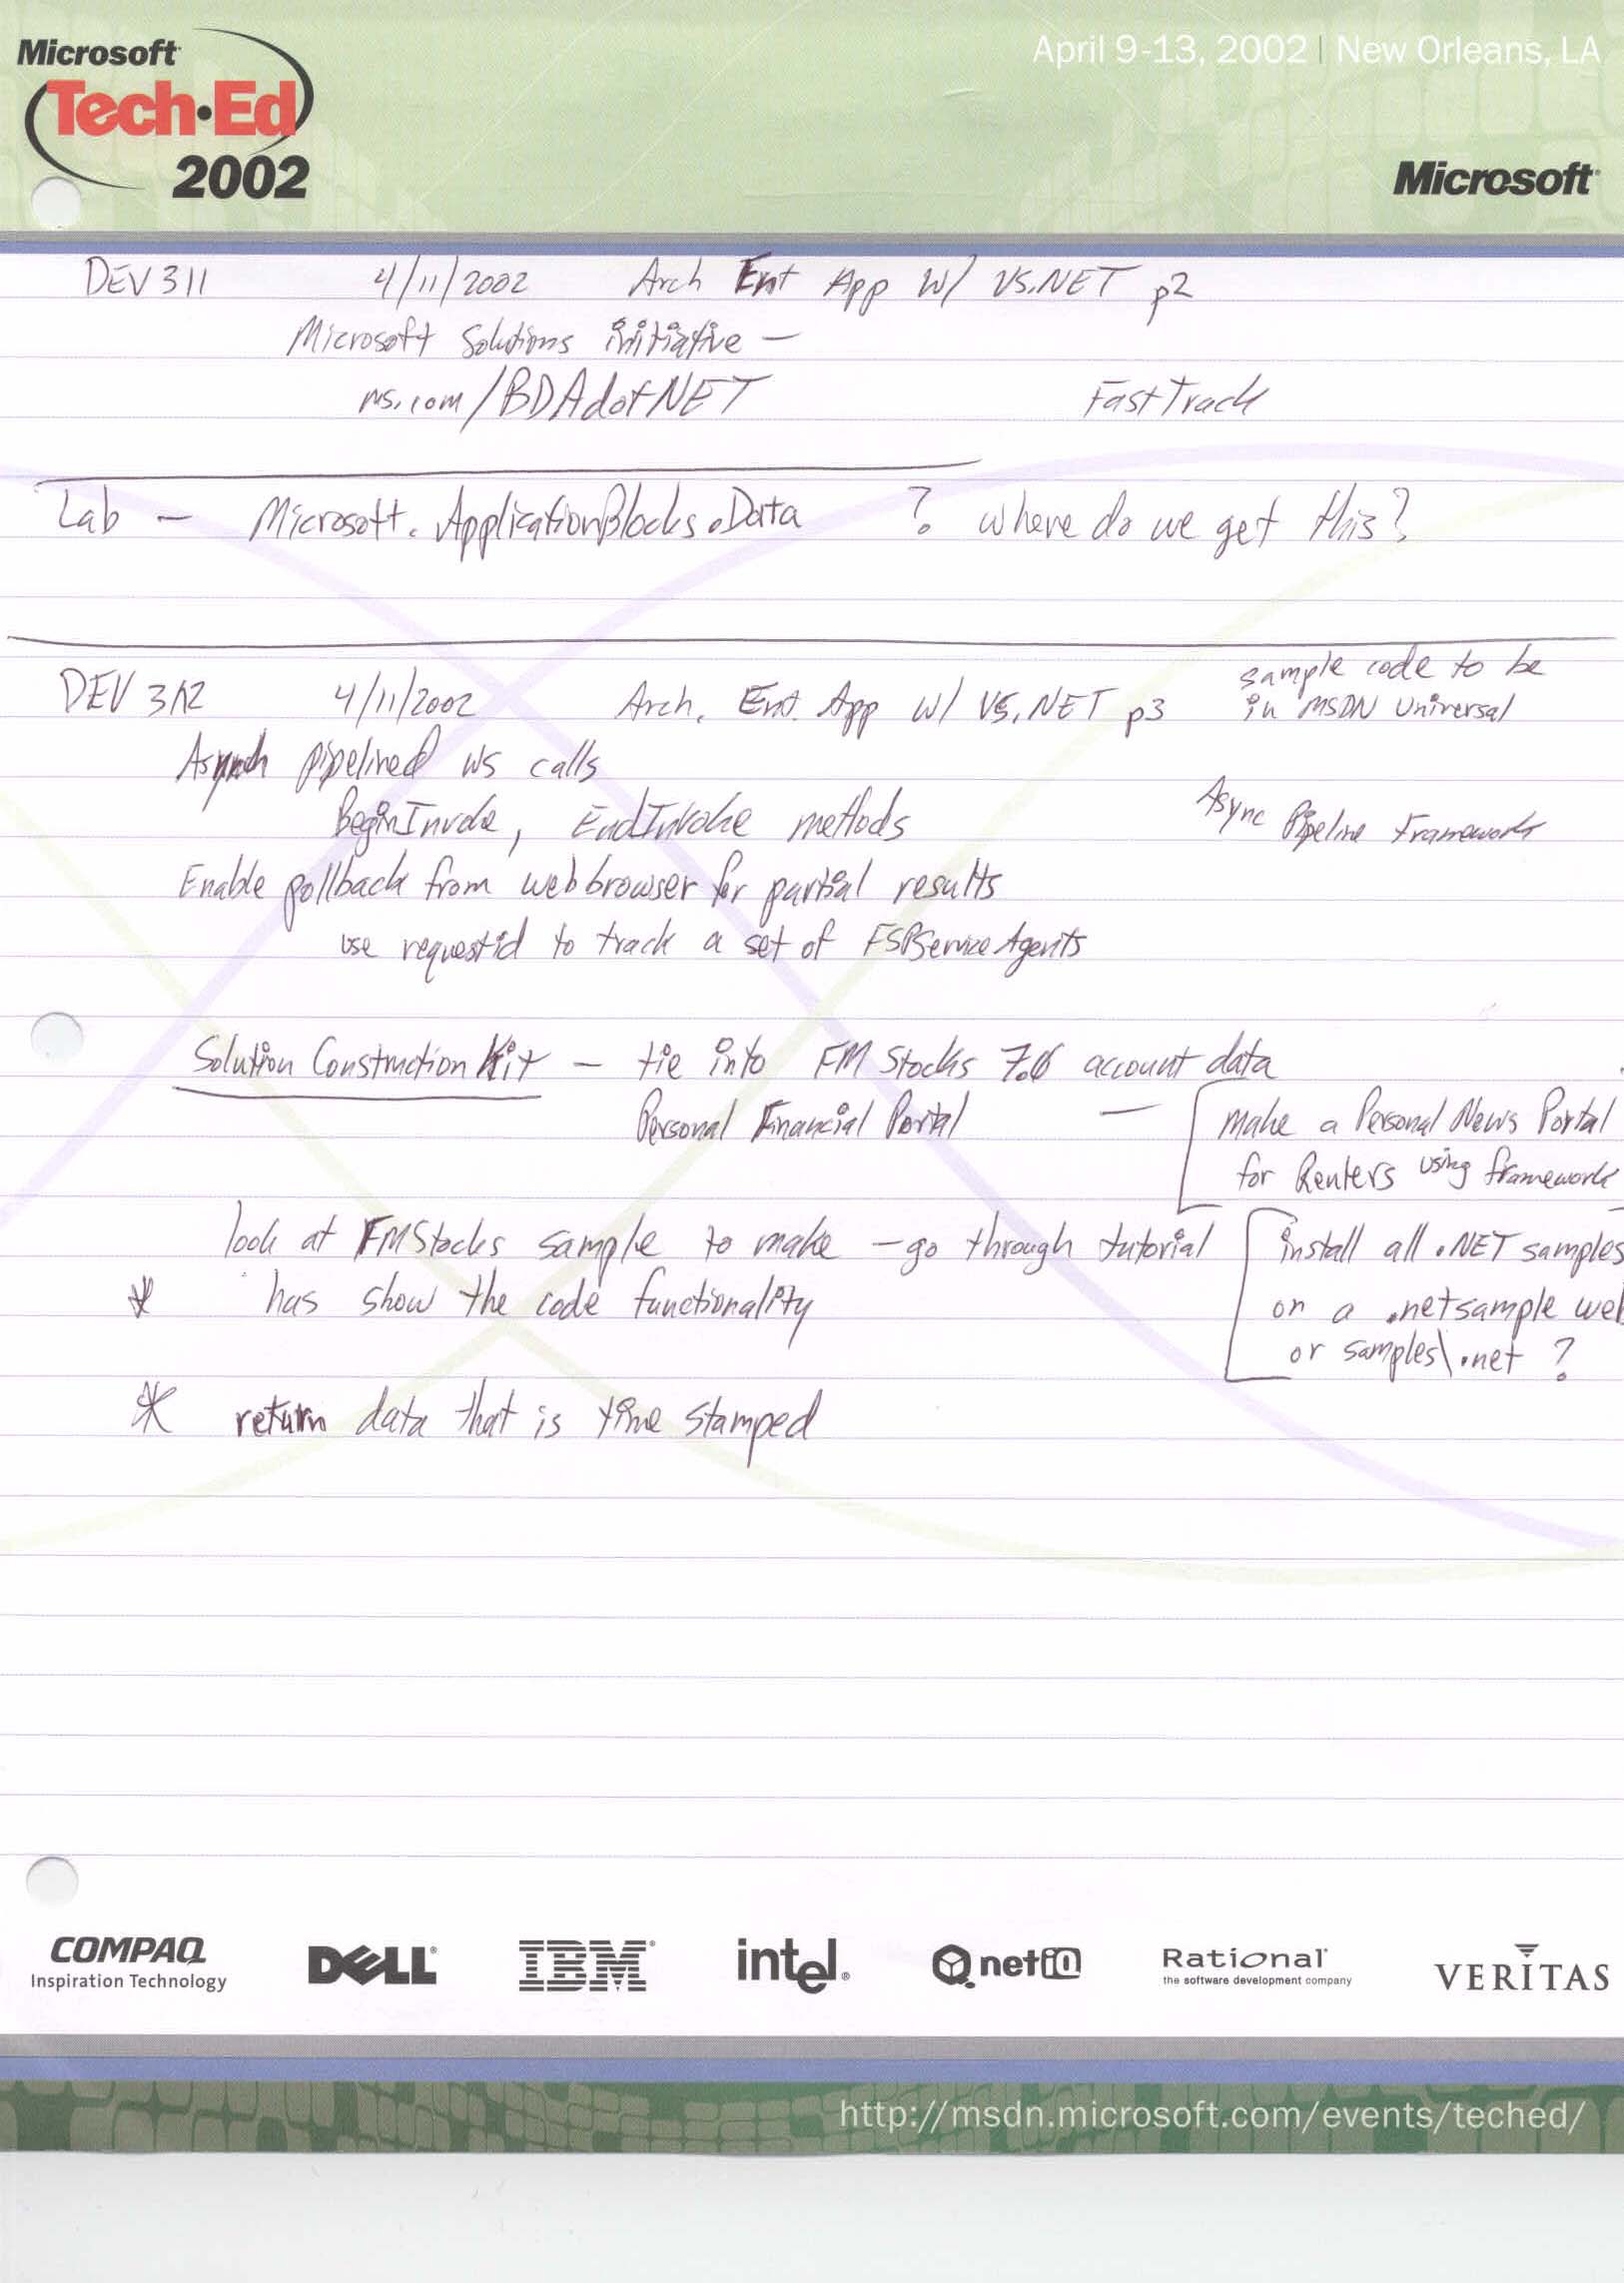 Microsoft
Tech·Ed
2002
April 9-13, 2002 | New Orleans, LA
Microsoft
DEV 311 4/11/2002 Arch Ent App W/ VS.NET p2
Microsoft Solutions initiative —
ms.com/BDAdotNET FastTrack
Lab — Microsoft.ApplicationBlocks.Data ? where do we get this?
DEV 312 4/11/2002 Arch. Ent. App W/ VS.NET p3
sample code to be
in MSDN Universal
Asynch pipelined ws calls
BeginInvoke, EndInvoke methods
Async Pipeline Framework
Enable pollback from web browser for partial results
use requestid to track a set of FSPServiceAgents
Solution Construction Kit — tie into FM Stocks 7.0 account data
Personal Financial Portal —
make a Personal News Portal
for Reuters using framework
look at FMStocks sample to make — go through tutorial
* has show the code functionality
install all .NET samples
on a .netsample web
or samples\.net ?
* return data that is time stamped
COMPAQ
Inspiration Technology
DELL
IBM
intel
netiQ
Rational
the software development company
VERITAS
http://msdn.microsoft.com/events/teched/